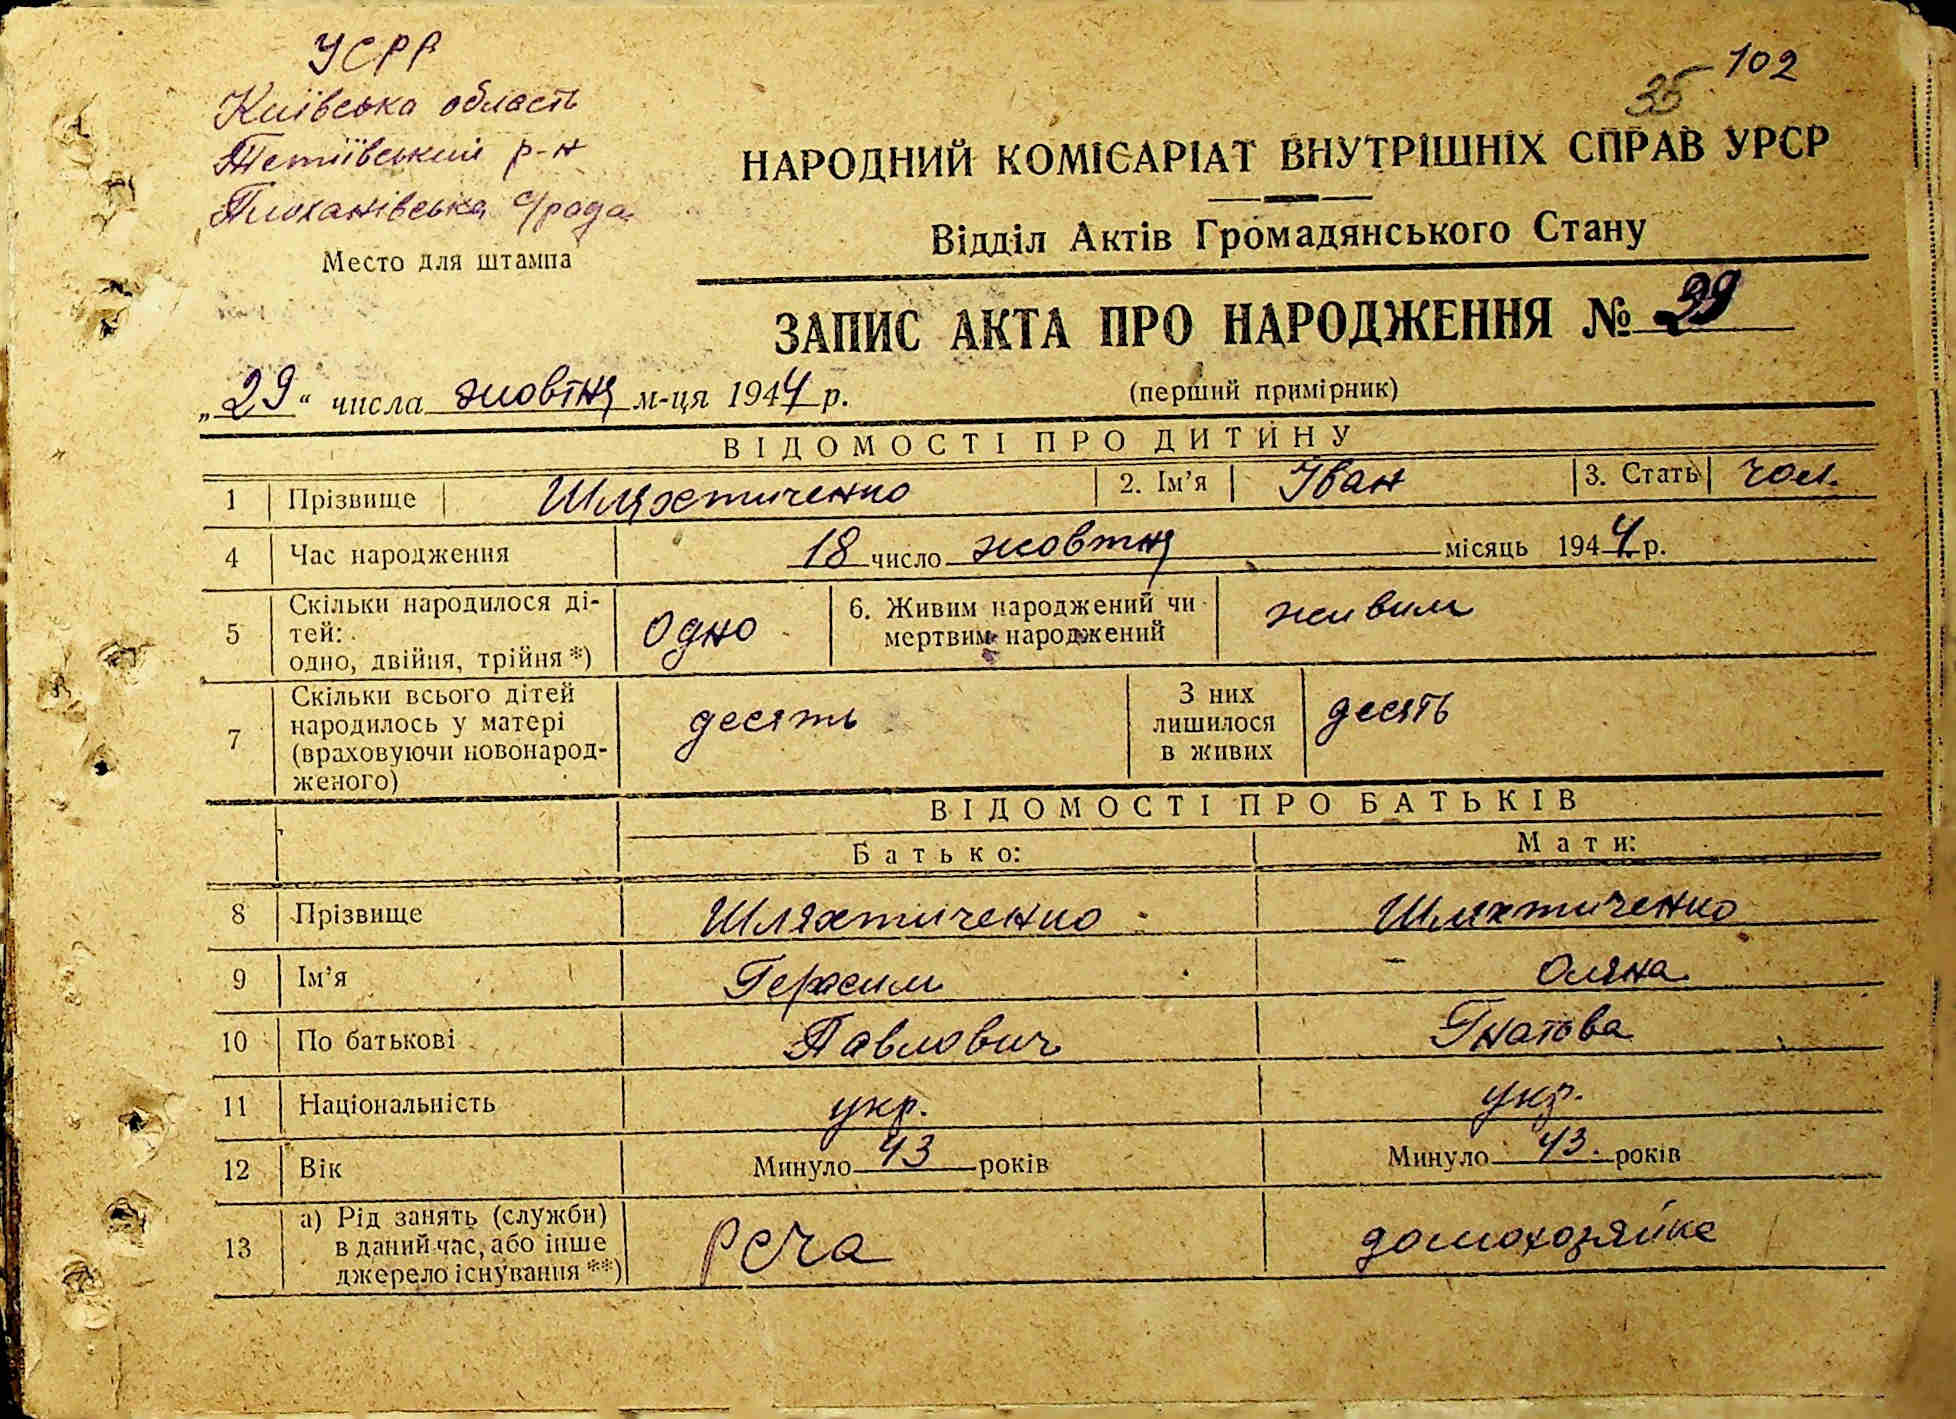 УСРР
Київська область
Тетіївський р-н
Плоханівська с/рада
Место для штампа
35 102
НАРОДНИЙ КОМІСАРІАТ ВНУТРІШНІХ СПРАВ УРСР
Відділ Актів Громадянського Стану
ЗАПИС АКТА ПРО НАРОДЖЕННЯ № 39
„29“ числа жовтня м-ця 1944 р.
(перший примірник)
ВІДОМОСТІ ПРО ДИТИНУ
1 Прізвище Шляхтиченко 2. Ім’я Іван 3. Стать чол.
4 Час народження 18 число жовтня місяць 1944 р.
5 Скільки народилося ді-
тей:
одно, двійня, трійня *) Одно 6. Живим народжений чи
мертвим народжений живим
7 Скільки всього дітей
народилось у матері
(враховуючи новонарод-
женого) десять З них
лишилося
в живих десять
ВІДОМОСТІ ПРО БАТЬКІВ
Батько: Мати:
8 Прізвище Шляхтиченко Шляхтиченко
9 Ім’я Герасим Оляна
10 По батькові Павлович Гнатова
11 Національність укр. укр.
12 Вік Минуло 43 років Минуло 43. років
13 а) Рід занять (служби)
в даний час, або інше
джерело існування **) РСЧА домохозяйка